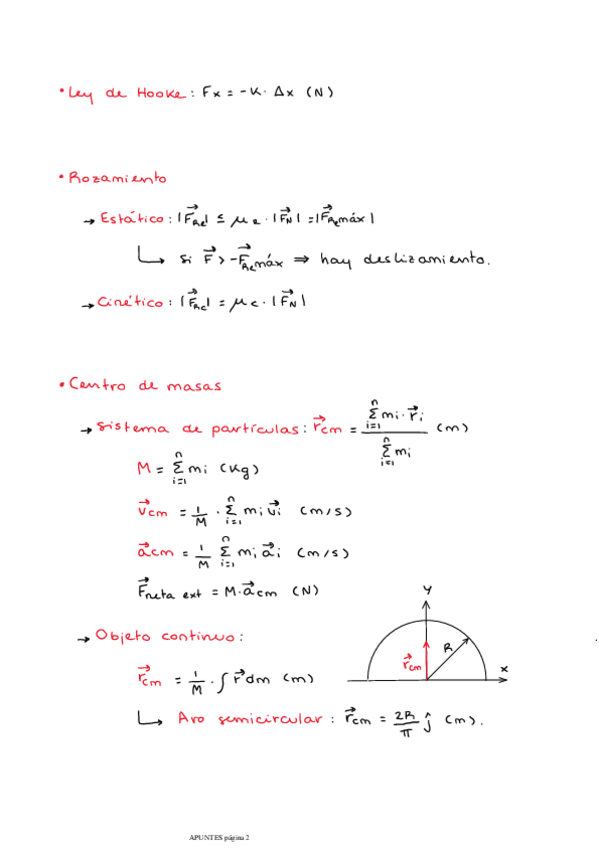 • Ley de Hooke: Fx = -K · Δx (N)
• Rozamiento
→ Estático: |F⃗Re| ≤ μe · |F⃗N| = |F⃗Re máx|
↳ Si F⃗ > -F⃗Re máx ⇒ hay deslizamiento.
→ Cinético: |F⃗Rc| = μc · |F⃗N|
• Centro de masas
→ Sistema de partículas: r⃗cm = (∑ᵢ₌₁ⁿ mi · r⃗i) / (∑ᵢ₌₁ⁿ mi) (m)
M = ∑ᵢ₌₁ⁿ mi (Kg)
v⃗cm = 1/M · ∑ᵢ₌₁ⁿ mi v⃗i (m/s)
a⃗cm = 1/M ∑ᵢ₌₁ⁿ mi a⃗i (m/s)
F⃗neta ext = M · a⃗cm (N)
→ Objeto continuo:
r⃗cm = 1/M · ∫ r⃗ dm (m)
↳ Aro semicircular: r⃗cm = 2R/π ĵ (m).
y
R
r⃗cm
x
APUNTES página 2